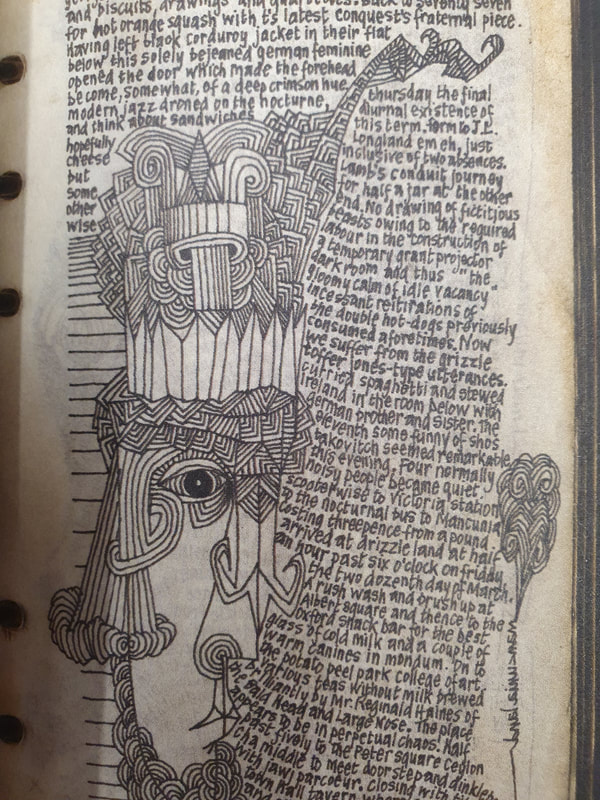 and biscuits, drawings and quartettes. Back to seventy seven
for hot orange squash with t's latest conquests fraternal piece.
Having left black corduroy jacket in their flat
below this solely bejeaned german feminine
opened the door which made the forehead
become, somewhat, of a deep crimson hue.
modern jazz droned on the nocturne,
and think about sandwiches
hopefully
cheese
but
some
other
wise
thursday the final
diurnal existence of
this term. form to J.L.
Longland em eh, just
inclusive of two absences.
Lamb's conduit journey
for half a jar at the other
end. No drawing of fictitious
beasts owing to the required
labour in the construction of
a temporary grant projector
dark room and thus "the"
gloomy calm of idle vacancy
incessant reitirations of
the double hot-dogs previously
consumed aforetimes. Now
we suffer from the grizzle
toffer jones-type utterances.
curried spaghetti and stewed
ireland in the room below with
german brother and sister. The
eleventh some funny of shos
takovitch seemed remarkable
this evening. Four normally
noisy people became quiet
scooterwise to Victoria station
to the nocturnal bus to Mancunia
costing threepence from a pound.
arrived at drizzle land at half
an hour past six o'clock on friday
the two dozenth day of March.
A rush wash and brush up at
Albert square and thence to the
Oxford snack bar for the best
glass of cold milk and a couple of
warm canines in mondum. On to
the potato peel park college of art
varioys teas without milk brewed
brilliantly by Mr. Reginald Haines of
the Bald Head and Large Nose. The place
appears to be in perpetual chaos. half
past fively to the Peter square ceylon
cha middle to meet doorstep and dinkler
with jawj parcoeur. Closing with the
town hall tavern